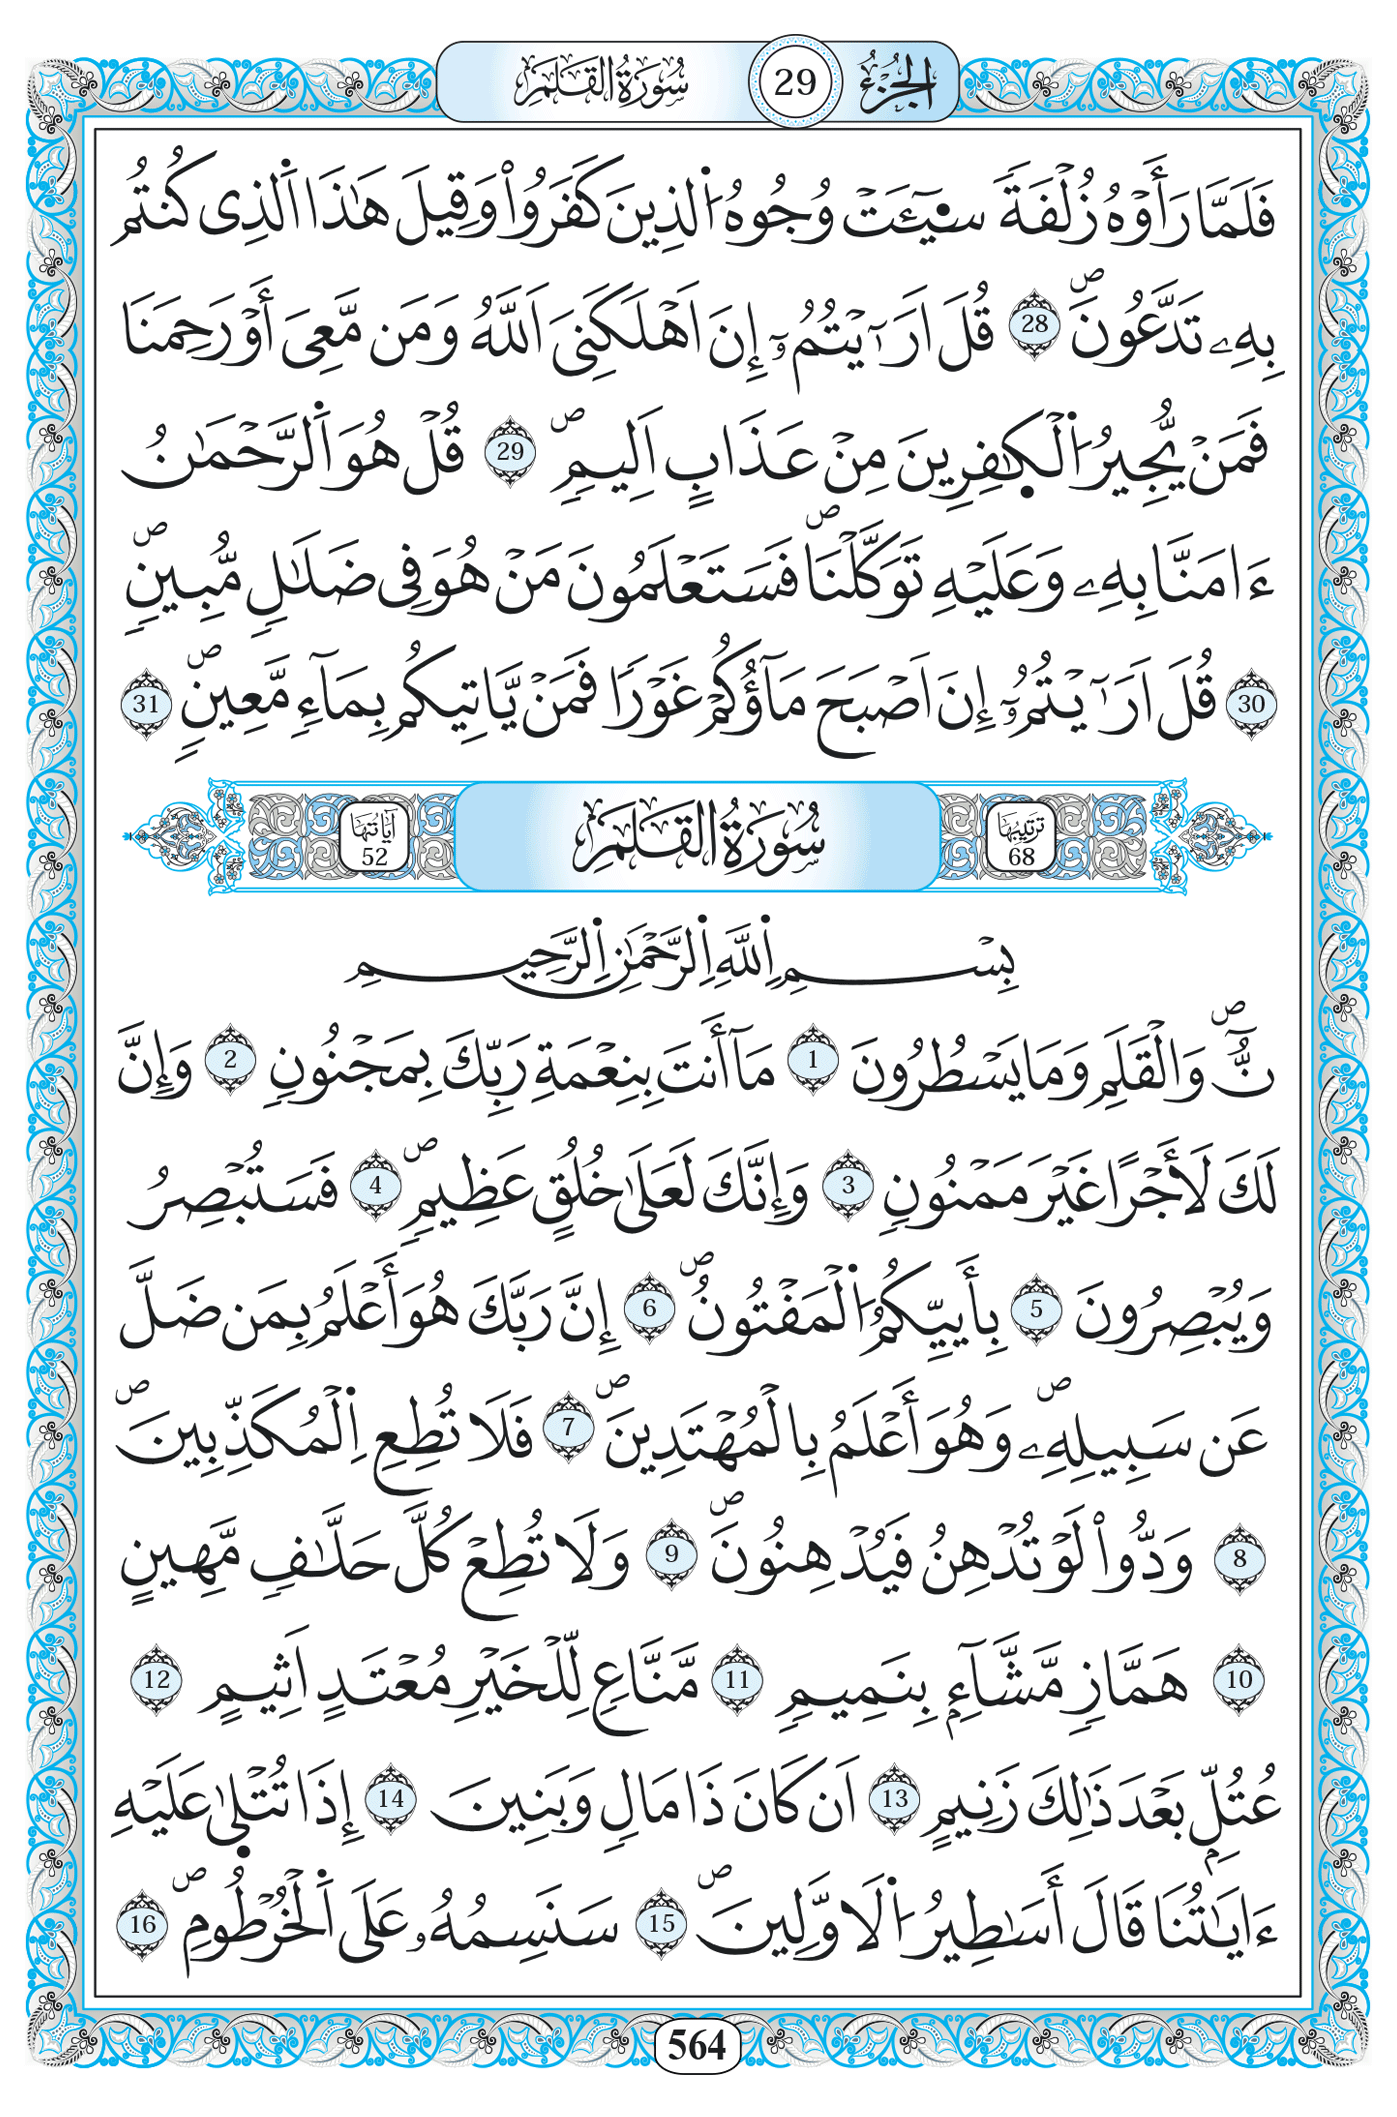 الجزء 29 سورة القلم
فَلَمَّا رَأَوْهُ زُلْفَةٗ سِيٓـَٔتْ وُجُوهُ اُ۬لذِينَ كَفَرُواْ وَقِيلَ هَٰذَا اَ۬لذِے كُنتُم
بِهِۦ تَدَّعُونَۖ 28 قُلَ اَرَٰٓيْتُمُۥٓ إِنَ اَهْلَكَنِيَ اَ۬للَّهُ وَمَن مَّعِيَ أَوْ رَحِمَنَا
فَمَنْ يُّجِيرُ اُ۬لْكٰ۪فِرِينَ مِنْ عَذَابٍ اَلِيمٖۖ 29 قُلْ هُوَ اَ۬لرَّحْمَٰنُ
ءَامَنَّا بِهِۦ وَعَلَيْهِ تَوَكَّلْنَاۖ فَسَتَعْلَمُونَ مَنْ هُوَ فِے ضَلَٰلٖ مُّبِينٖۖ
30 قُلَ اَرَٰٓيْتُمُۥٓ إِنَ اَصْبَحَ مَآؤُكُمْ غَوْراٗ فَمَنْ يَّاتِيكُم بِمَآءٖ مَّعِينٖۖ 31
ترتيبها 68 سورة القلم آياتها 52
بِسْمِ اِ۬للَّهِ اِ۬لرَّحْمَٰنِ اِ۬لرَّحِيمِ
نُّٓۖ وَالْقَلَمِ وَمَا يَسْطُرُونَ 1 مَآ أَنتَ بِنِعْمَةِ رَبِّكَ بِمَجْنُونٖ 2 وَإِنَّ
لَكَ لَأَجْراً غَيْرَ مَمْنُونٖ 3 وَإِنَّكَ لَعَلَىٰ خُلُقٍ عَظِيمٖۖ 4 فَسَتُبْصِرُ
وَيُبْصِرُونَ 5 بِأَييِّكُمُ اُ۬لْمَفْتُونُۖ 6 إِنَّ رَبَّكَ هُوَ أَعْلَمُ بِمَن ضَلَّ
عَن سَبِيلِهِۦۖ وَهُوَ أَعْلَمُ بِالْمُهْتَدِينَۖ 7 فَلَا تُطِعِ اِ۬لْمُكَذِّبِينَۖ
8 وَدُّواْ لَوْ تُدْهِنُ فَيُدْهِنُونَۖ 9 وَلَا تُطِعْ كُلَّ حَلَّافٖ مَّهِينٍ
10 هَمَّازٖ مَّشَّآءِۢ بِنَمِيمٖ 11 مَّنَّاعٖ لِّلْخَيْرِ مُعْتَدٍ اَثِيمٍ 12
عُتُلِّۢ بَعْدَ ذَٰلِكَ زَنِيمٍ 13 اَن كَانَ ذَا مَالٖ وَبَنِينَ 14 إِذَا تُتْلٰ۪ى عَلَيْهِ
ءَايَٰتُنَا قَالَ أَسَٰطِيرُ اُ۬لَاوَّلِينَۖ 15 سَنَسِمُهُۥ عَلَى اَ۬لْخُرْطُومِۖ 16
564